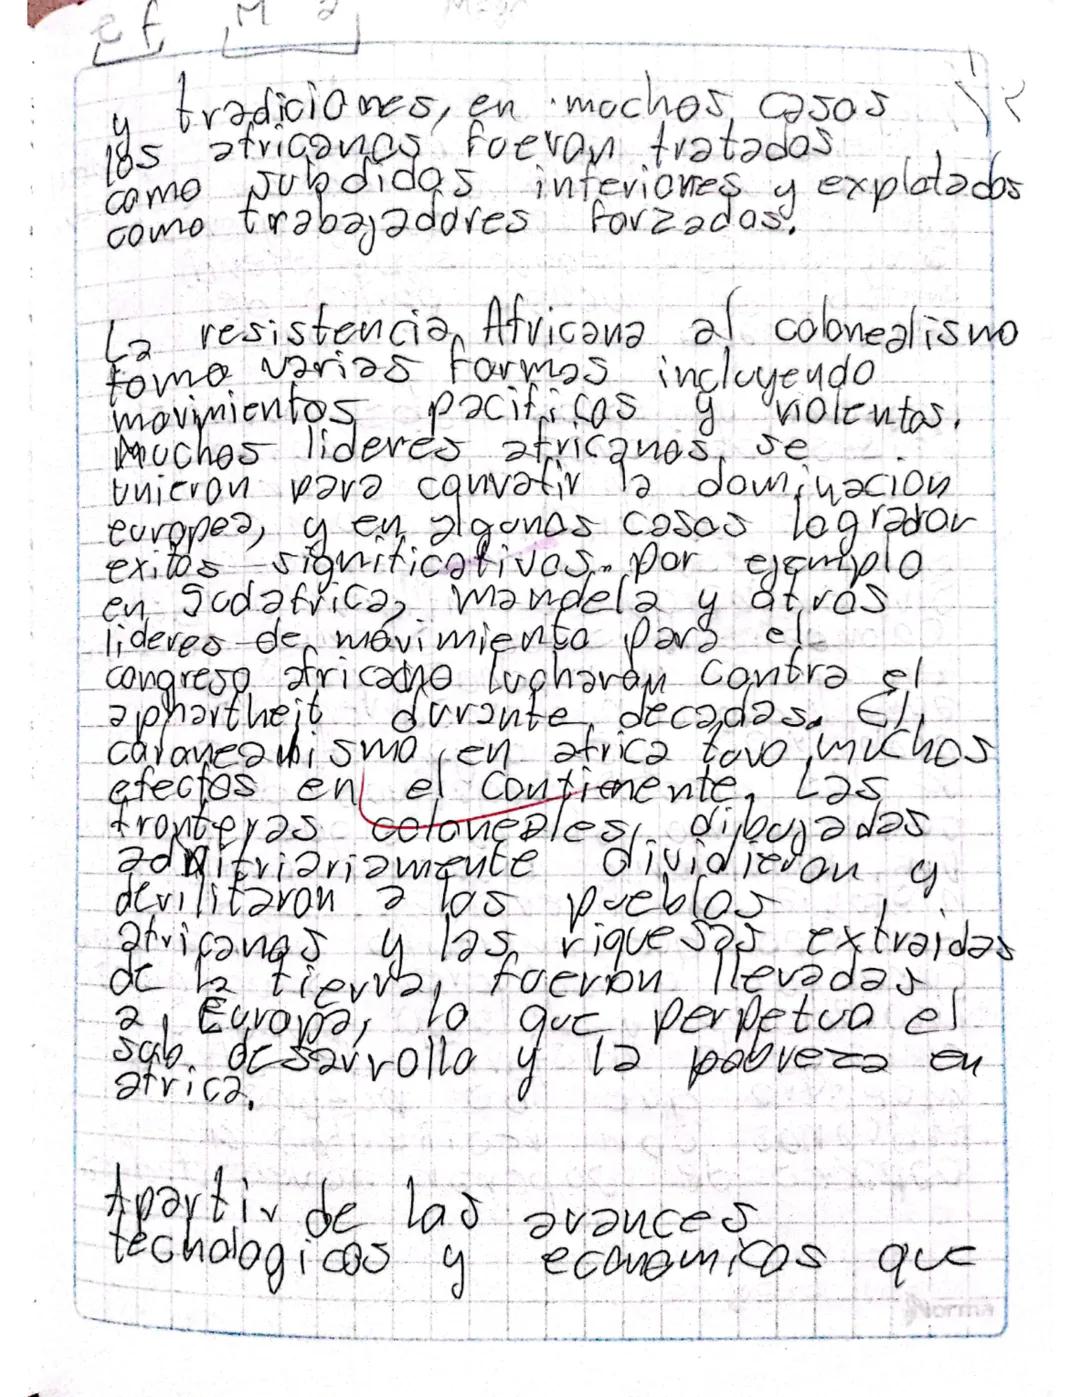 y tradiciones, en muchos casos
los africanos fueron tratados
como subdidos inferiores y explotados
como trabajadores forzados.
La resistencia Africana al colonealismo
tomo varias formas incluyendo
movimientos pacificos y violentos.
Muchos lideres africanos se
unieron para convatir la dominacion
europea, y en algunos casos lograron
exitos significativos. por ejemplo
en Sudafrica, mandela y otros
lideres de movimiento para el
congreso africano lucharon contra el
aphartheit durante decadas. El
en africa tuvo muchos
efectos en el continente. Las
fronteras coloneales, dibujadas
dividieron y
devilitaron a los pueblos
africanos y las riquesas extraidas
de la tierra, fueron llevadas
a Europa, lo que perpetuo el
sub desarrollo y la pobreza en
africa.
Apartir de los avances
tecnologicos y economicos que
Norma